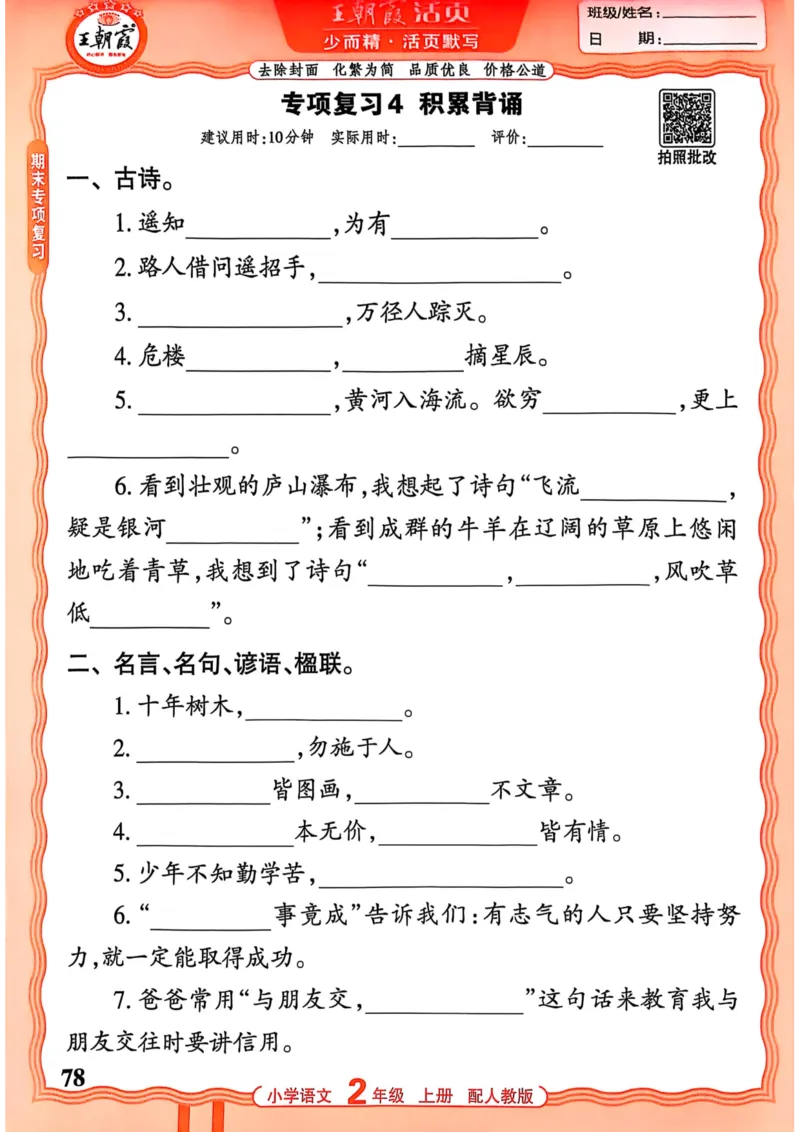 王朝霞
王朝霞活页
少而精·活页默写
班级/姓名:
日 期:
去除封面 化繁为简 品质优良 价格公道
专项复习4 积累背诵
建议用时:10分钟 实际用时:________ 评价:________
拍照批改
期末专项复习
一、古诗。
1. 遥知____________,为有____________。
2. 路人借问遥招手,____________________。
3. ________________,万径人踪灭。
4. 危楼____________,__________摘星辰。
5. ________________,黄河入海流。欲穷___________,更上
_____________。
6. 看到壮观的庐山瀑布,我想起了诗句“飞流____________,
疑是银河___________”;看到成群的牛羊在辽阔的草原上悠闲
地吃着青草,我想到了诗句“___________,___________,风吹草
低__________”。
二、名言、名句、谚语、楹联。
1. 十年树木,_____________。
2. _____________,勿施于人。
3. ___________皆图画,___________不文章。
4. _____________本无价,_____________皆有情。
5. 少年不知勤学苦,____________________。
6. “__________事竟成”告诉我们:有志气的人只要坚持努
力,就一定能取得成功。
7. 爸爸常用“与朋友交,_____________”这句话来教育我与
朋友交往时要讲信用。
78
小学语文 2年级 上册 配人教版